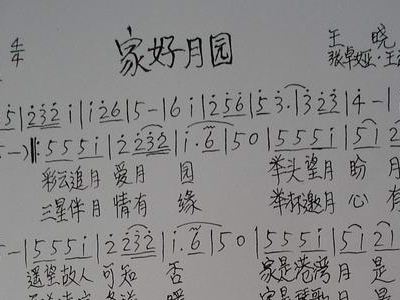 4/4 家好月园 王 晓
张卓娅·王
5|2̇3̇2̇ i|i 2̇6|5-|6 i|2̇5̇6̇|5̇ 3̇.|3̇2̇3̇|4̇-|
5-)‖:5 5 5 i|2̇ 2̇3̇2̇|i. 6|5 0|5 5 5 i|5 i 2̇
彩云追月 爱月 园 举头望月 盼 月
三星伴月 情有 缘 举杯邀月 心 有
-|5 5 5 i|2̇ 2̇3̇2̇|i. 6|5 0|5 5 5 i|5 i 2̇
遥望故人 可知 否 家是港湾 月 是